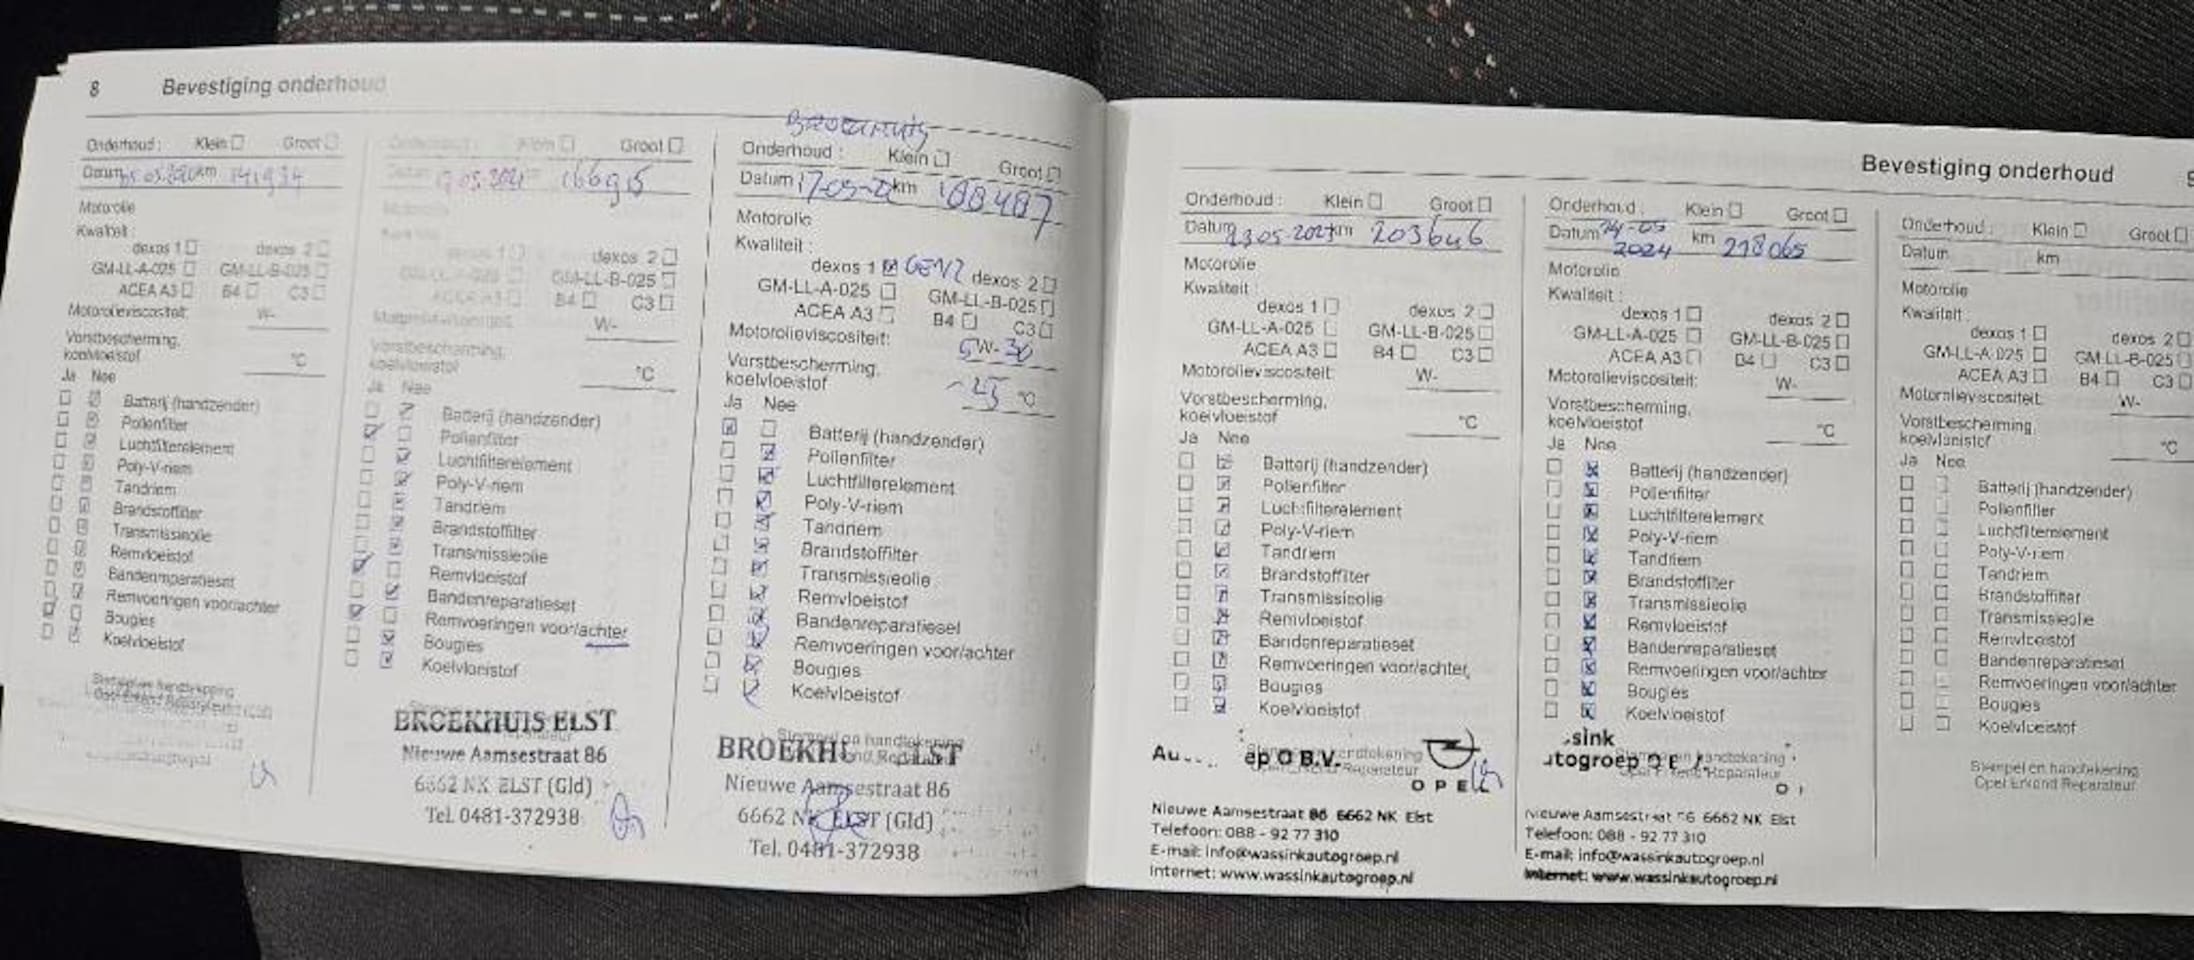 8 Bevestiging onderhoud
Onderhoud : Klein Groot
Datum 05.05.2020 km 141934
Motorolie
Kwaliteit :
dexos 1 dexos 2
GM-LL-A-025 GM-LL-B-025
ACEA A3 B4 C3
Motorolieviscositeit: W-
Vorstbescherming,
koelvloeistof °C
Ja Nee
Batterij (handzender)
Pollenfilter
Luchtfilterelement
Poly-V-riem
Tandriem
Brandstoffilter
Transmissieolie
Remvloeistof
Bandenreparatieset
Remvoeringen voor/achter
Bougies
Koelvloeistof
Stempel en handtekening
Opel Erkend Reparateur
Klein Groot
Datum 17.05.2021 km 166915
Motorolie
dexos 1 dexos 2
GM-LL-A-025 GM-LL-B-025
ACEA A3 B4 C3
Motorolieviscositeit: W-
Vorstbescherming,
koelvloeistof °C
Ja Nee
Batterij (handzender)
Pollenfilter
Luchtfilterelement
Poly-V-riem
Tandriem
Brandstoffilter
Transmissieolie
Remvloeistof
Bandenreparatieset
Remvoeringen voor/achter
Bougies
Koelvloeistof
BROEKHUIS ELST
Nieuwe Aamsestraat 86
6662 NK ELST (Gld)
Tel. 0481-372938
Broekhuis
Onderhoud : Klein Groot
Datum 17-05-22 km 188487
Motorolie
Kwaliteit :
dexos 1 GEN2 dexos 2
GM-LL-A-025 GM-LL-B-025
ACEA A3 B4 C3
Motorolieviscositeit: 5W-30
Vorstbescherming,
koelvloeistof -25 °C
Ja Nee
Batterij (handzender)
Pollenfilter
Luchtfilterelement
Poly-V-riem
Tandriem
Brandstoffilter
Transmissieolie
Remvloeistof
Bandenreparatieset
Remvoeringen voor/achter
Bougies
Koelvloeistof
Stempel en handtekening
BROEKHU ELST
Nieuwe Aamsestraat 86
6662 NK ELST (Gld)
Tel. 0481-372938
Bevestiging onderhoud 9
Onderhoud : Klein Groot
Datum 23.05-2023 km 203646
Motorolie
Kwaliteit :
dexos 1 dexos 2
GM-LL-A-025 GM-LL-B-025
ACEA A3 B4 C3
Motorolieviscositeit: W-
Vorstbescherming,
koelvloeistof °C
Ja Nee
Batterij (handzender)
Pollenfilter
Luchtfilterelement
Poly-V-riem
Tandriem
Brandstoffilter
Transmissieolie
Remvloeistof
Bandenreparatieset
Remvoeringen voor/achter
Bougies
Koelvloeistof
Au ep O B.V.
OPEL
Nieuwe Aamsestraat 86 6662 NK Elst
Telefoon: 088 - 92 77 310
E-mail: info@wassinkautogroep.nl
Internet: www.wassinkautogroep.nl
Onderhoud : Klein Groot
Datum 14-05 2024 km 218065
Motorolie
Kwaliteit :
dexos 1 dexos 2
GM-LL-A-025 GM-LL-B-025
ACEA A3 B4 C3
Motorolieviscositeit: W-
Vorstbescherming,
koelvloeistof °C
Ja Nee
Batterij (handzender)
Pollenfilter
Luchtfilterelement
Poly-V-riem
Tandriem
Brandstoffilter
Transmissieolie
Remvloeistof
Bandenreparatieset
Remvoeringen voor/achter
Bougies
Koelvloeistof
sink
utogroep O
Nieuwe Aamsestraat 6662 NK Elst
Telefoon: 088 - 92 77 310
E-mail: info@wassinkautogroep.nl
Internet: www.wassinkautogroep.nl
Onderhoud : Klein Groot
Datum km
Motorolie
Kwaliteit :
dexos 1 dexos 2
GM-LL-A-025 GM-LL-B-025
ACEA A3 B4 C3
Motorolieviscositeit: W-
Vorstbescherming,
koelvloeistof °C
Ja Nee
Batterij (handzender)
Pollenfilter
Luchtfilterelement
Poly-V-riem
Tandriem
Brandstoffilter
Transmissieolie
Remvloeistof
Bandenreparatieset
Remvoeringen voor/achter
Bougies
Koelvloeistof
Stempel en handtekening
Opel Erkend Reparateur